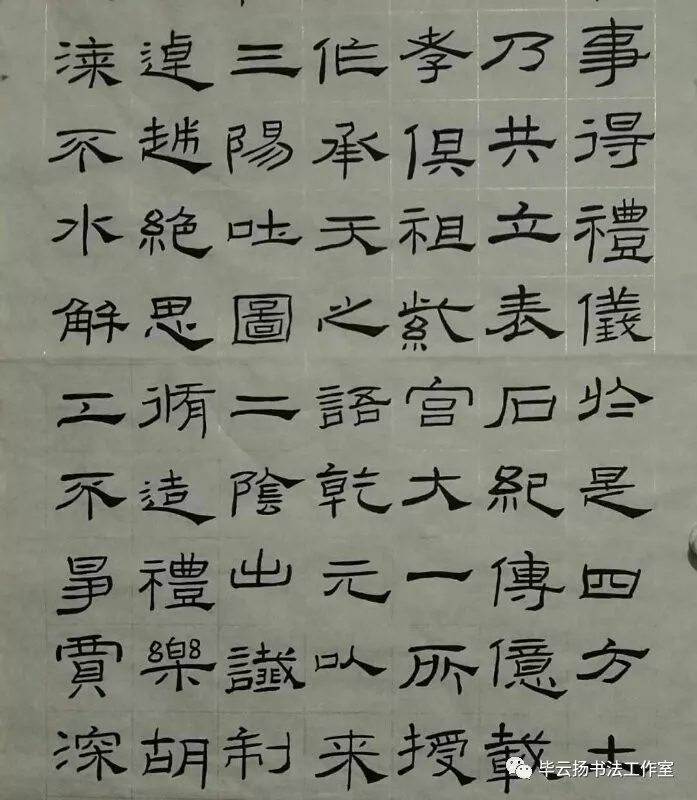 事得禮儀於是四方士
乃共立表石紀傳億載
孝俱祖紫宮大一所授
作承天之語乾元以来
三陽吐圖二陰出讖制
逴越絕思脩造禮樂胡
漆不水解工不爭賈深
毕云扬书法工作室